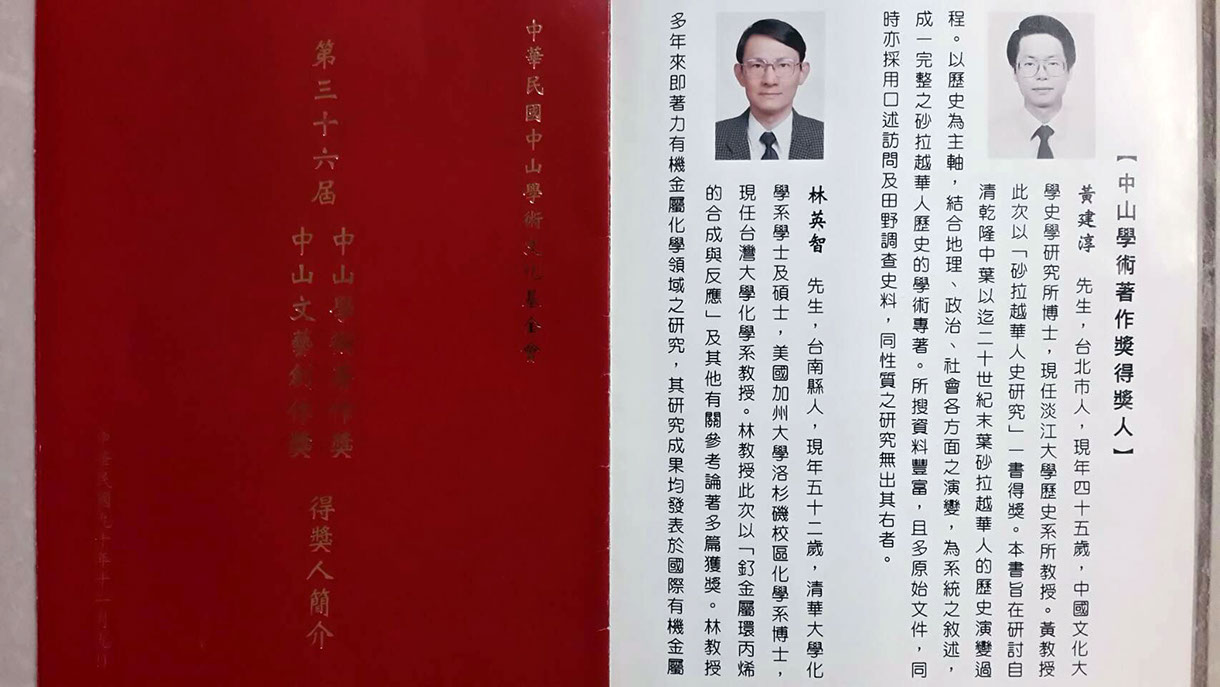 中華民國中山學術文化基金會
第三十六屆
中山學術著作獎
中山文藝創作獎
得獎人簡介
中華民國九十年十一月
【中山學術著作獎得獎人】
黃建淳　先生，台北市人，現年四十五歲，中國文化大
學史學研究所博士，現任淡江大學歷史系所教授。黃教授
此次以「砂拉越華人史研究」一書得獎。本書旨在研討自
清乾隆中葉以迄二十世紀末葉砂拉越華人的歷史演變過
程。以歷史為主軸，結合地理、政治、社會各方面之演變，為系統之敘述，
成一完整之砂拉越華人歷史的學術專著。所搜資料豐富，且多原始文件，同
時亦採用口述訪問及田野調查史料，同性質之研究無出其右者。
林英智　先生，台南縣人，現年五十二歲，清華大學化
學系學士及碩士，美國加州大學洛杉磯校區化學系博士，
現任台灣大學化學系教授。林教授此次以「釕金屬環丙烯
的合成與反應」及其他有關參考論著多篇獲獎。林教授
多年來即著力有機金屬化學領域之研究，其研究成果均發表於國際有機金屬